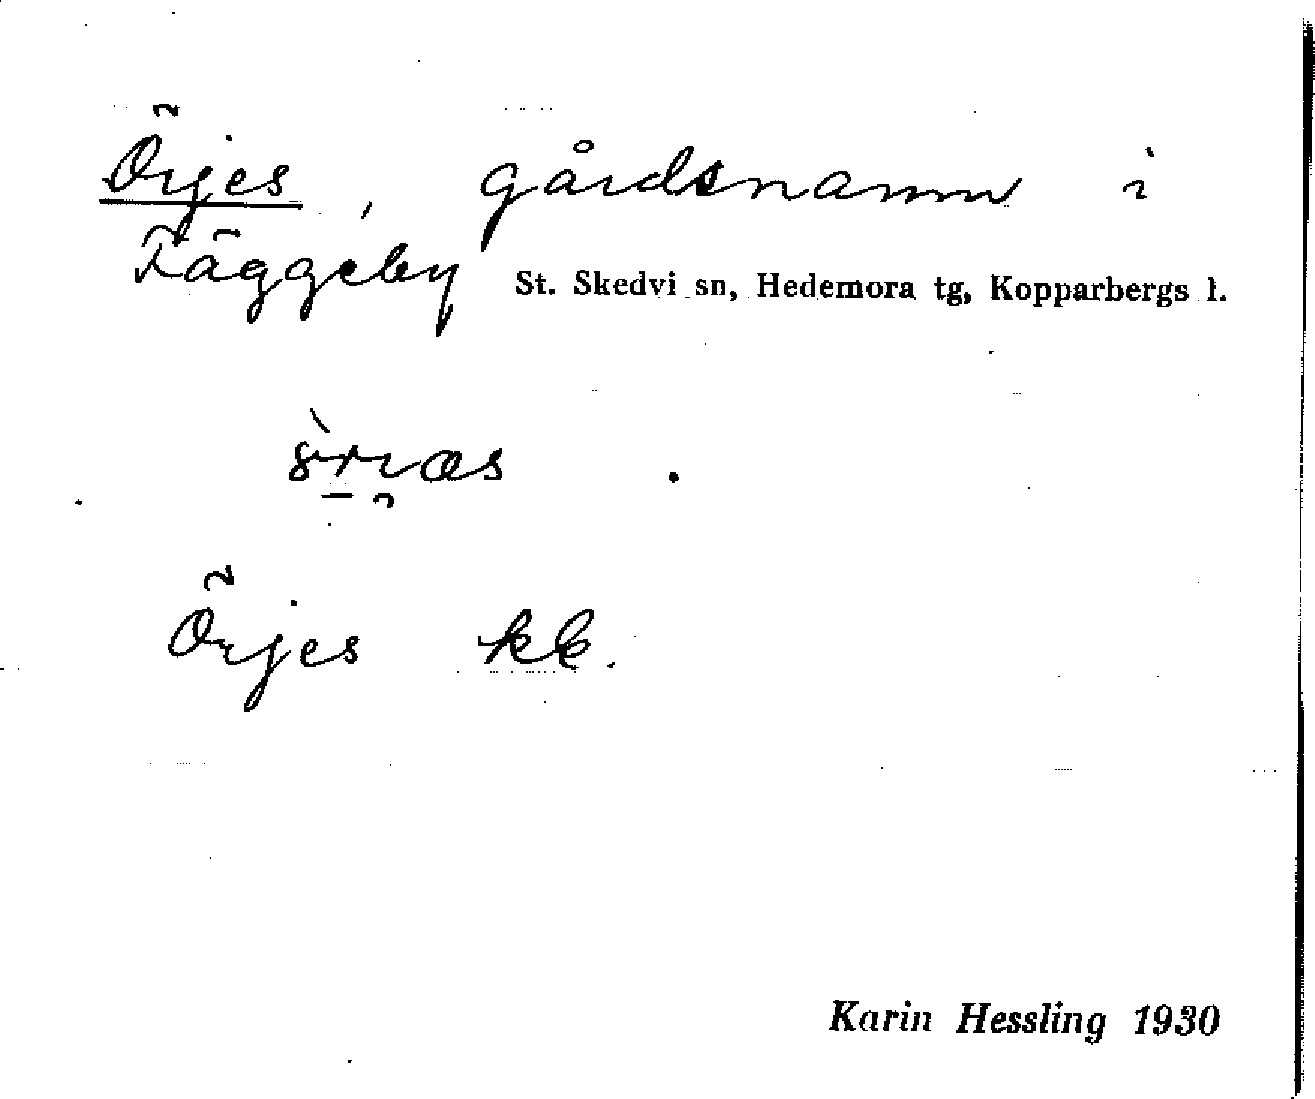 Örjes, gårdsnamn i
Fäggeby St. Skedvi sn, Hedemora tg, Kopparbergs l.
Örjes kk.
Karin Hessling 1930